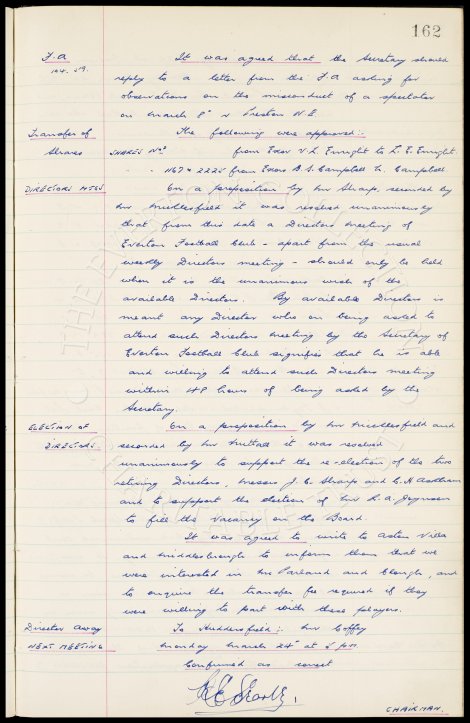 162
F.A It was agreed that the Secretary should
reply to a letter from the F.A asking for
observations on the misconduct of a spectator
on March 8th v Preston N.E
Transfer of The following were approved:-
Shares SHARES Nos from Exor V.L. Enright to L.E. Enright
1167 & 2225 from Exors B.S. Campbell Campbell
DIRECTORS MTGS On a proposition by Mr Sharp, seconded by
Mr Micklesfield it was resolved unanimously
that from this date a Directors Meeting of
Everton Football Club - apart from the usual
weekly Directors meeting - should only be held
when it is the unanimous wish of the
available Directors. By available Directors is
meant any Director who on being asked to
attend such Directors meeting by the Secretary of
Everton Football Club signifies that he is able
and willing to attend such Directors meeting
within 48 hours of being asked by the
Secretary.
ELECTION OF On a proposition by Mr Micklesfield and
DIRECTORS seconded by Mr Nuttall it was resolved
unanimously to support the re-election of the two
retiring Directors, Messrs J.C. Sharp and C.H Askham
and to support the election of Mr R.A. Joynson
to fill the Vacancy on the Board.
It was agreed to write to Aston Villa
and Middlesbrough to inform them that we
were interested in Mr Parland and Clough, and
to enquire the transfer fee required if they
were willing to part with these players.
Director Away To Huddersfield:- Mr Coffey
NEXT MEETING Monday March 24th at 5 pm
Confirmed as correct
CHAIRMAN.